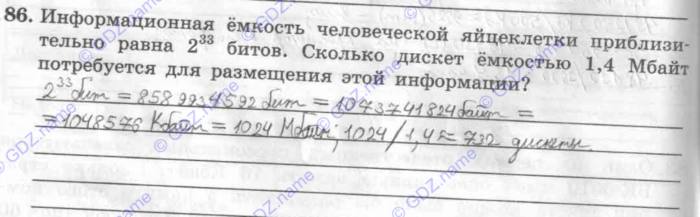 86. Информационная ёмкость человеческой яйцеклетки приблизи-
тельно равна 2³³ битов. Сколько дискет ёмкостью 1,4 Мбайт
потребуется для размещения этой информации?
2³³ бит = 8589934592 бит = 1073741824 байт =
= 1048576 Кбайт = 1024 Мбайт, 1024/1,4 ≈ 732 дискеты
©GDZ.name